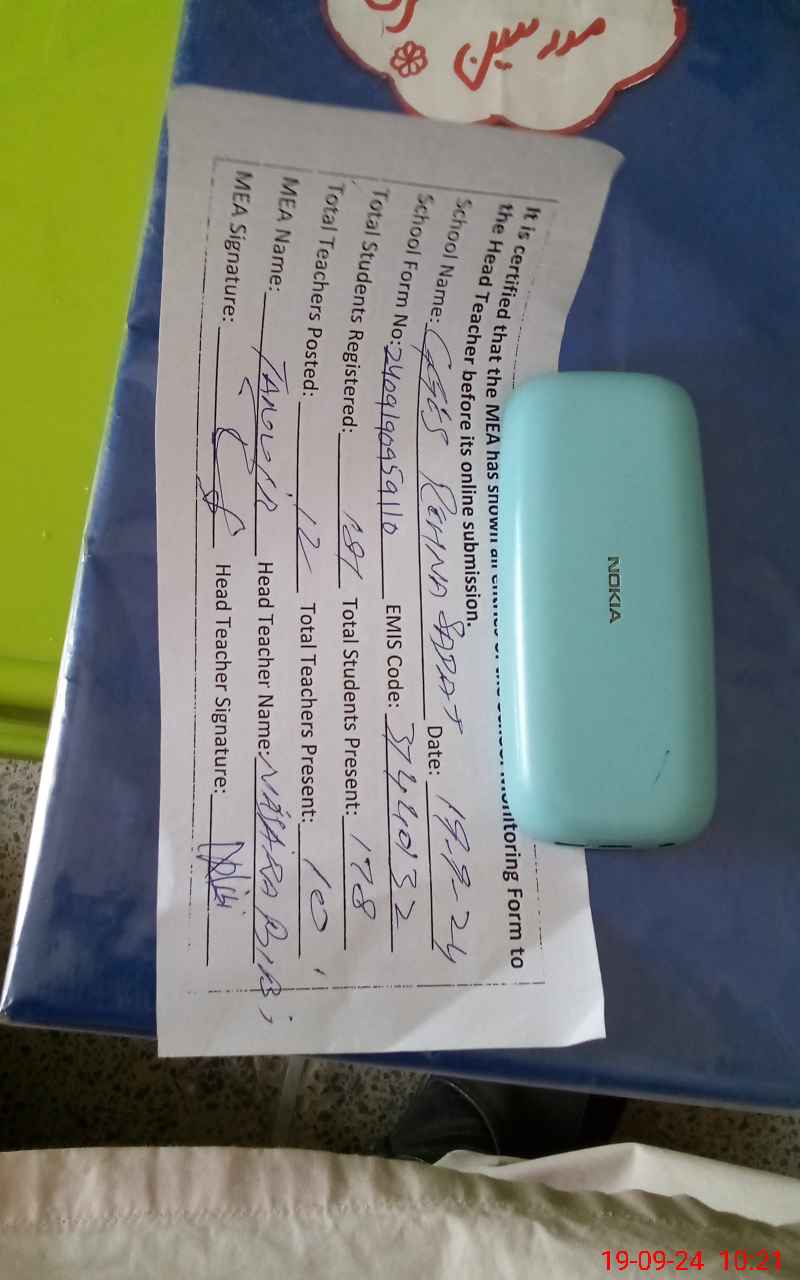 مدرسین
NOKIA
It is certified that the MEA has shown all entries of the School Monitoring Form to
the Head Teacher before its online submission.
School Name: GGES REHNA SADAT Date: 19-9-24
School Form No: EMIS Code: 37440132
Total Students Registered: 181 Total Students Present: 178
Total Teachers Posted: 12 Total Teachers Present: 10
MEA Name: TANVIR Head Teacher Name: NASAIRA BIBI
MEA Signature: Head Teacher Signature:
19-09-24 10:21